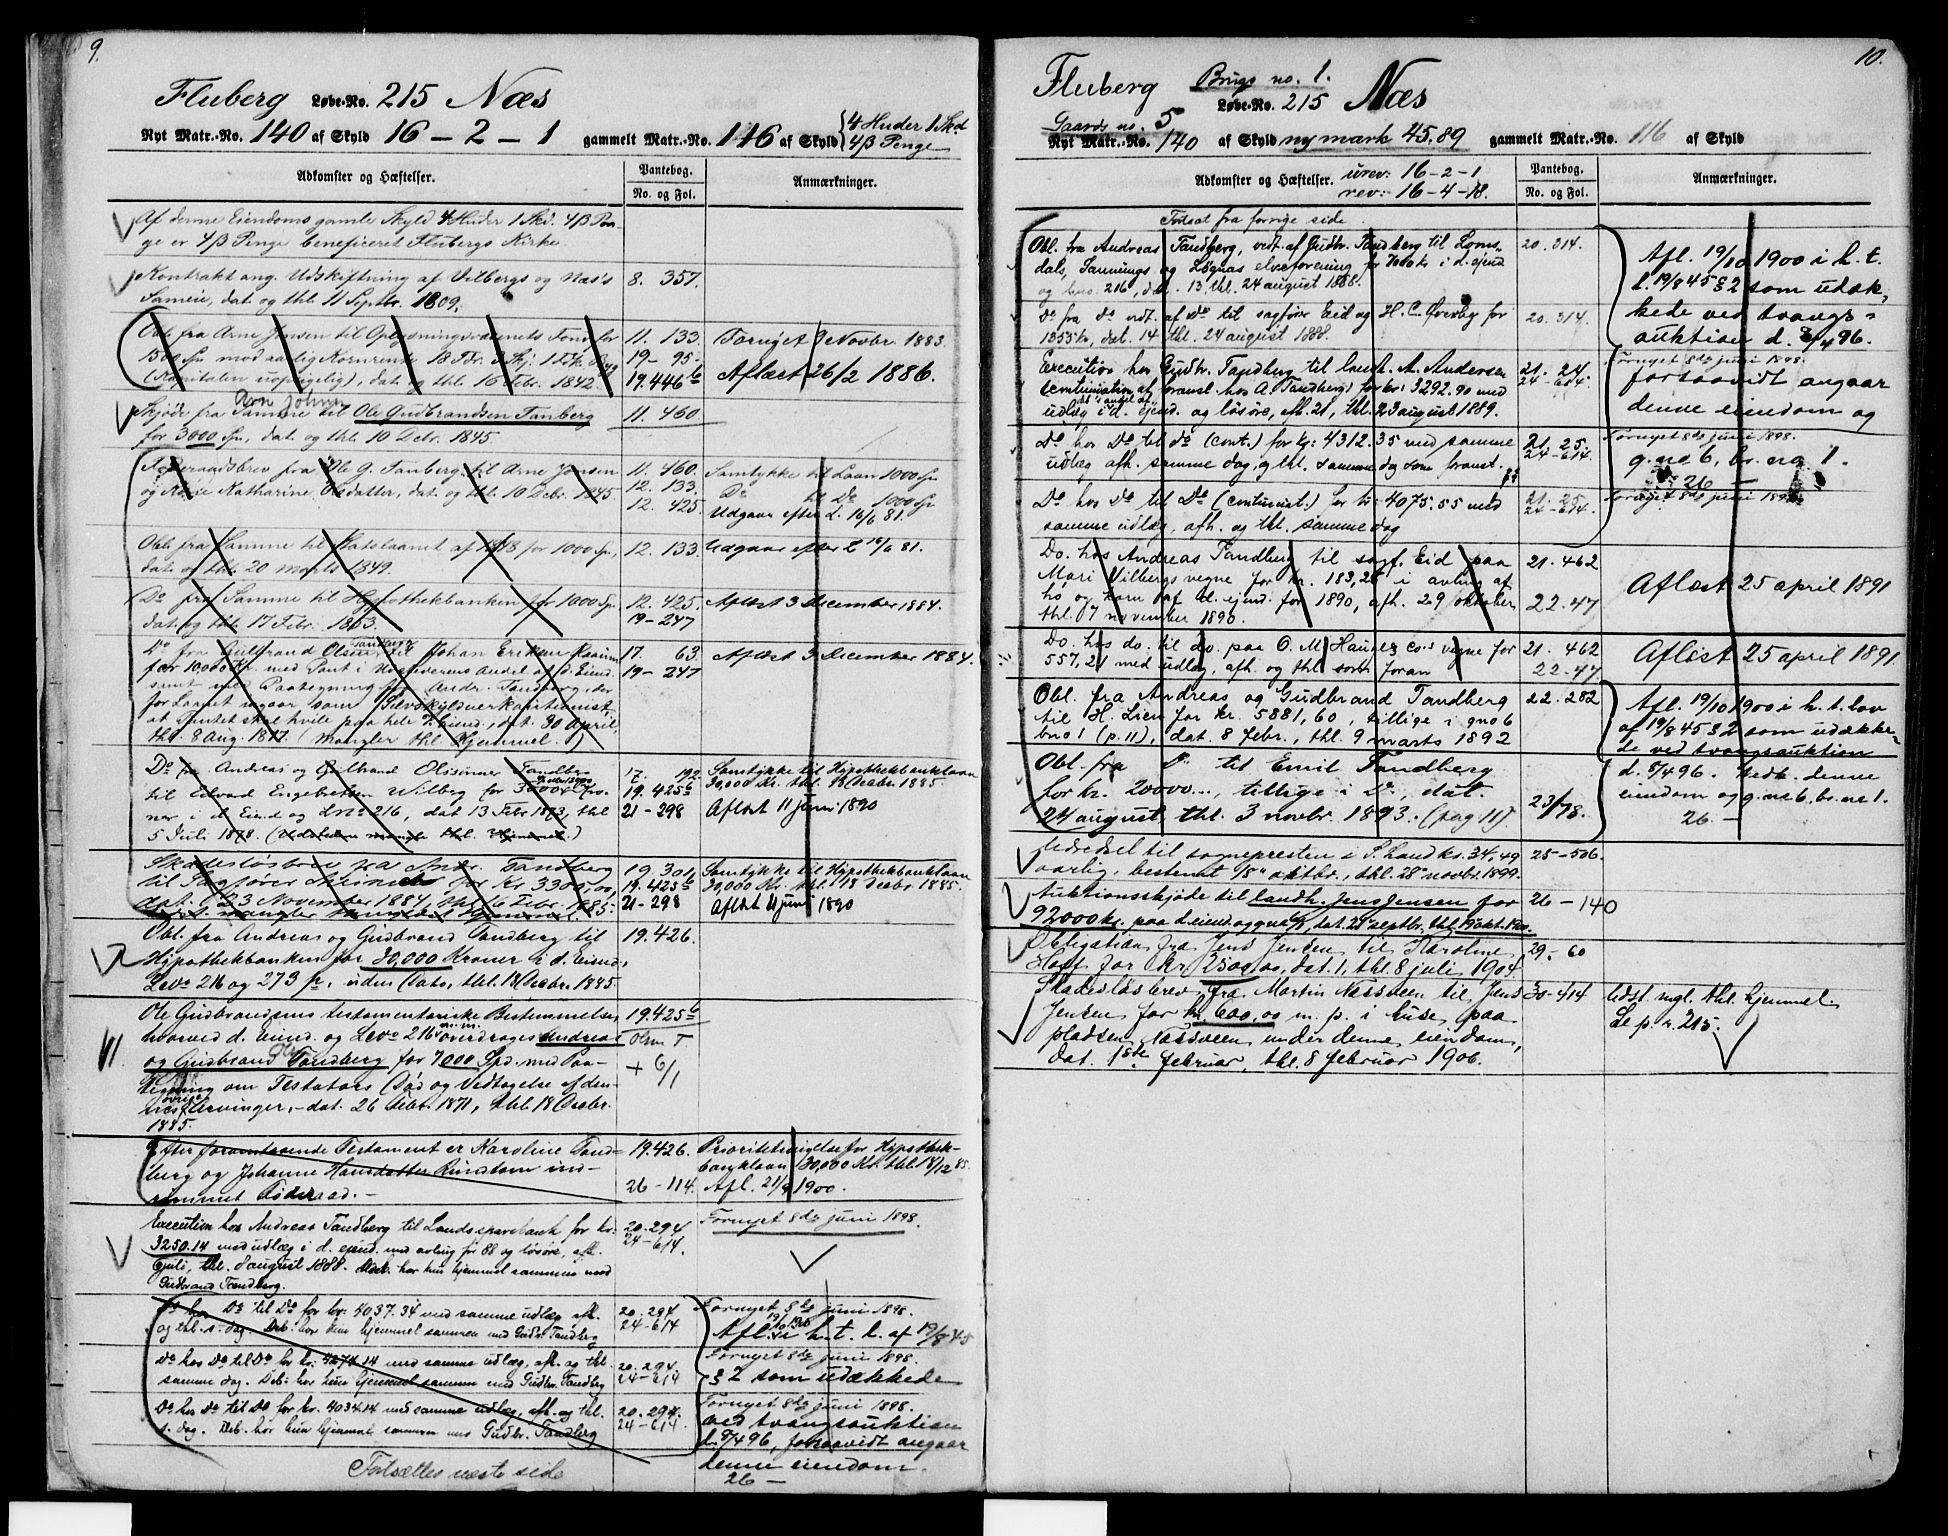 9.
Fluberg Løbe-No. 215 Næs
Nyt Matr.-No. 140 af Skyld 16 - 2 - 1 gammelt Matr.-No. 116 af Skyld {4 Huder 1 Skd. 4 β Penge
Adkomster og Hæftelser. Pantebog. No. og Fol. Anmærkninger.
Af denne Eiendoms gamle Skyld 4 Huder 1 Skd. 4 β Pen-
ge er 4 β Penge beneficeret Flubergs Kirke.
Kontrakt ang. Udskiftning af Vilbergs og Næs's 8. 357.
Sameie, dat. og thl. 11 Septbr. 1809.
Obl. fra Arne Jensen til Oplysningsvæsenets Fond for 11. 133. Fornyet 9 Novbr. 1883.
1500 Sp. mod aarlig Kornrente 18 19- 95.
(Kapitalen uopsigelig), dat. og thl. 16 Febr. 1842. 19.446 b Aflæst 26/2 1886.
Arne Johnsen
Skjøde fra Samme til Ole Gudbrandsen Tanberg 11. 460
for 3000 Sp., dat. og thl. 10 Debr. 1845.
Føderaadsbrev fra Ole G. Tanberg til Arne Jensen 11. 460. Samtykke til Laan 1000 Sp
og Katharine Olsdatter, dat. og thl. 10 Debr. 1845 12. 133. Do til Do 1000 Sp
12. 425. Udgaar efter L. 16/6 81.
Obl. fra Samme til Statslaanet af 1848 for 1000 Sp., 12. 133. Udgaar efter L 16/6 81.
dat. og thl. 20 Marts 1849.
Do fra Samme til Hypothekbanken for 1000 Sp. 12. 425. Aflæst 3 December 1884.
dat. og thl. 17 Febr. 1863. 19-247
Do fra Gulbrand Olsen Tandberg til Johan Eriksen 17. 63. Aflæst 3 December 1884.
for 1000 Kr. med Pant i Udstederens Andel af d. Eiend. 19-247
samt med Paategning af Andr. Tandberg, der
for Laanet ingaar som Selvskyldnerkautionist
at Pantet skal hvile paa hele d. Eiend., dat. 30 April,
thl. 8 Aug. 1877. (Mangler thl. Hjemmel.)
Do fra Andreas og Gulbrand Olssønner Tandberg 17. 192. Samtykke til Hypothekbanklaan
til Edvard Engebretsen Wilberg for 3000 Kro- 19.425 b 30,000 Kr. thl. 18 Decbr. 1885.
ner i d. Eiend og Lno 216, dat 13 Febr 1873, thl 21-298 Aflæst 11 juni 1890
5 Juli 1878. (Udstederen mangler thl. Hjemmel.)
Skadesløsbrev fra Andr. Tandberg 19.301. Samtykke til Hypothekbanklaan
til Sagfører for Kr 3300,00, 19.425 b 30,000 Kr. thl. 18 Decbr. 1885.
dat. 23 November 1884, thl. 6 Febr. 1885. 21-298 Aflæst 11 juni 1890
Obl. fra Andreas og Gudbrand Tandberg til 19.426.
Hypothekbanken for 30,000 Kroner i d. Eiend.,
Lno 216 og 273 , uden Dato, thl. 18 Decbr. 1885.
Ole Gudbrandsens testamentariske Bestemmelse, 19.425 b
hvorved d. Eiend. og Lno 216 m.m. overdrages Andreas Olsen T.
og Gudbrand Tandberg for 7000 Spd. med Paa- + 6/1
tegning om Testators Død og Vedtagelse af den-
nes øvrige Arvinger, - dat. 26 Febr. 1871, thl. 18 Decbr.
1885.
Efter foranstaaende Testament er Karoline Tand- 19.426. Prioritetsvigelse for Hypothek-
berg og Johanne Hansdatter ind- banklaan 30,000 Kr. thl. 18/12 85.
rømmet Føderaad. - 26-114. Afl. 21/9 1900.
Execution hos Andreas Tandberg til Lands sparebank for kr. 20.294 Fornyet 8de juni 1898.
3250.14 med udlæg i d. eiend. med avling for 88 og løsøre, afh. 24-614.
6 juli, thl. 8 august 1888. Deb. har kun hjemmel sammen med
Gudbrand Tandberg.
Do hos Do til Do for kr. 4037.34 med samme udlæg, afh. 20.294 Fornyet 8de juni 1898.
og thl. s. dag. Deb. har kun hjemmel sammen med Gudbr. Tandberg 24-614 Afl. 19/10 1900 i h. t. l. af 19/8 45
Do hos Do til Do for kr. 4274.14 med samme udlæg, afh. og thl. 20.294. Fornyet 8de juni 1898.
samme dag. Deb. har kun hjemmel sammen med Gudbr. Tandberg 24-614 § 2 som udækkede
Do hos Do til Do for kr. 4034.14 med samme udlæg, afh. og thl. 20.294. Fornyet 8de juni 1898.
s. dag. Deb. har kun hjemmel sammen med Gudbr. Tandberg 24-614. ved tvangsauktion
d. 8/4 96, forsaavidt angaar
denne eiendom.
Fortsættes næste side 26 -
10.
Fluberg Brugs no. 1. Løbe-No. 215 Næs
Gaards no. 5
Nyt Matr.-No. 140 af Skyld ny mark 45.89 gammelt Matr.-No. 116 af Skyld
urev: 16-2-1
Adkomster og Hæftelser. rev: 16-4-18. Pantebog. No. og Fol. Anmærkninger.
Fortsat fra forrige side.
Obl. fra Andreas Tandberg, vedt. af Gudbr. Tandberg til Loms- 20.314. Afl. 19/10 1900 i h. t.
dals, Sannings og Løgnas elveforening for 7000 kr i d. ejend l. 19/8 45 § 2 som udæk-
og lno. 216, dat. 13, thl. 24 august 1888.
Do fra do vedt. af Do til sagfører Eid og H. C. Øverby for 20.314. kede ved tvangs-
1355 kr, dat. 14 thl. 24 august 1888. auktion d. 8/4 96.
Execution hos Gudbr. Tandberg til landh. A. Andersen 21. 24 Fornyet 8de juni 1898.
(continuation af foranst. hos A. Tandberg) for kr: 3292.90 med 24-614. forsaavidt angaar
udlæg i d. ejend. og løsøre, afh. 21, thl. 23 august 1889. denne eiendom og
Do hos Do til do (cont.) for kr: 4312.35 med samme 21. 25. Fornyet 8de juni 1898.
udlæg afh. samme dag, og thl. samme dag som foranst. 24-614. g. no 6, br. no 1.
26 -
Do hos Do til Do (continuat.) for kr: 4075.55 med 21. 25. Fornyet 8de juni 1898
samme udlæg, afh. og thl. samme dag 24-614
Do. hos Andreas Tandberg til sagf. Eid paa 21. 462
Mari Vilbergs vegne for kr. 183,28 i avling af Aflæst 25 april 1891
hø og korn af d. ejend. for 1890, afh. 29 oktober 22. 47
thl. 7 november 1890.
Do. hos do. til do. paa O. M. Hauges Co.s vegne for 21. 462 Aflæst 25 april 1891.
557,21 med udlæg, afh. og thl. som foran 22. 47
Obl. fra Andreas og Gudbrand Tandberg 22. 282 Afl. 19/10 1900 i h. t. lov
til H. Lien for kr. 5881,60, tillige i gno 6 af 19/8 45 § 2 som udække-
bno 1 (p. 11), dat. 8 febr., thl. 9 marts 1892 de ved tvangsauktion
Obl. fra Do til Emil Tandberg d. 8/4 96. Vedk. denne
for kr. 20000..., tillige i Do, dat. eiendom og g. no 6, br. no 1.
24 august thl. 3 novbr. 1893. (pag 11). 23/78. 26 -
Udredsel til sognepresten i S. Land kr. 34,49 25-506.
aarlig, bestemt 18 oktbr., thl. 28 novbr. 1899.
Auktionsskjøde til landh. Jens Jensen for 26-140
92000 kr. paa d. eiend. og gno 6, dat. 28 septbr. thl. 19 okt. 1900.
Obligation fra Jens Jensen til Karoline 29-60
Hoff for kr 2500,00, dat. 1, thl. 8 juli 1904
Skadesløsbrev fra Martin Næsveen til Jens 30-414 Udst. mgl. thl. hjemmel.
Jensen for kr 600,00 m. p. i huse paa Se p. n. 215.
pladsen Næsveen under denne eiendom,
dat. 1ste februar, thl. 8 februar 1906.